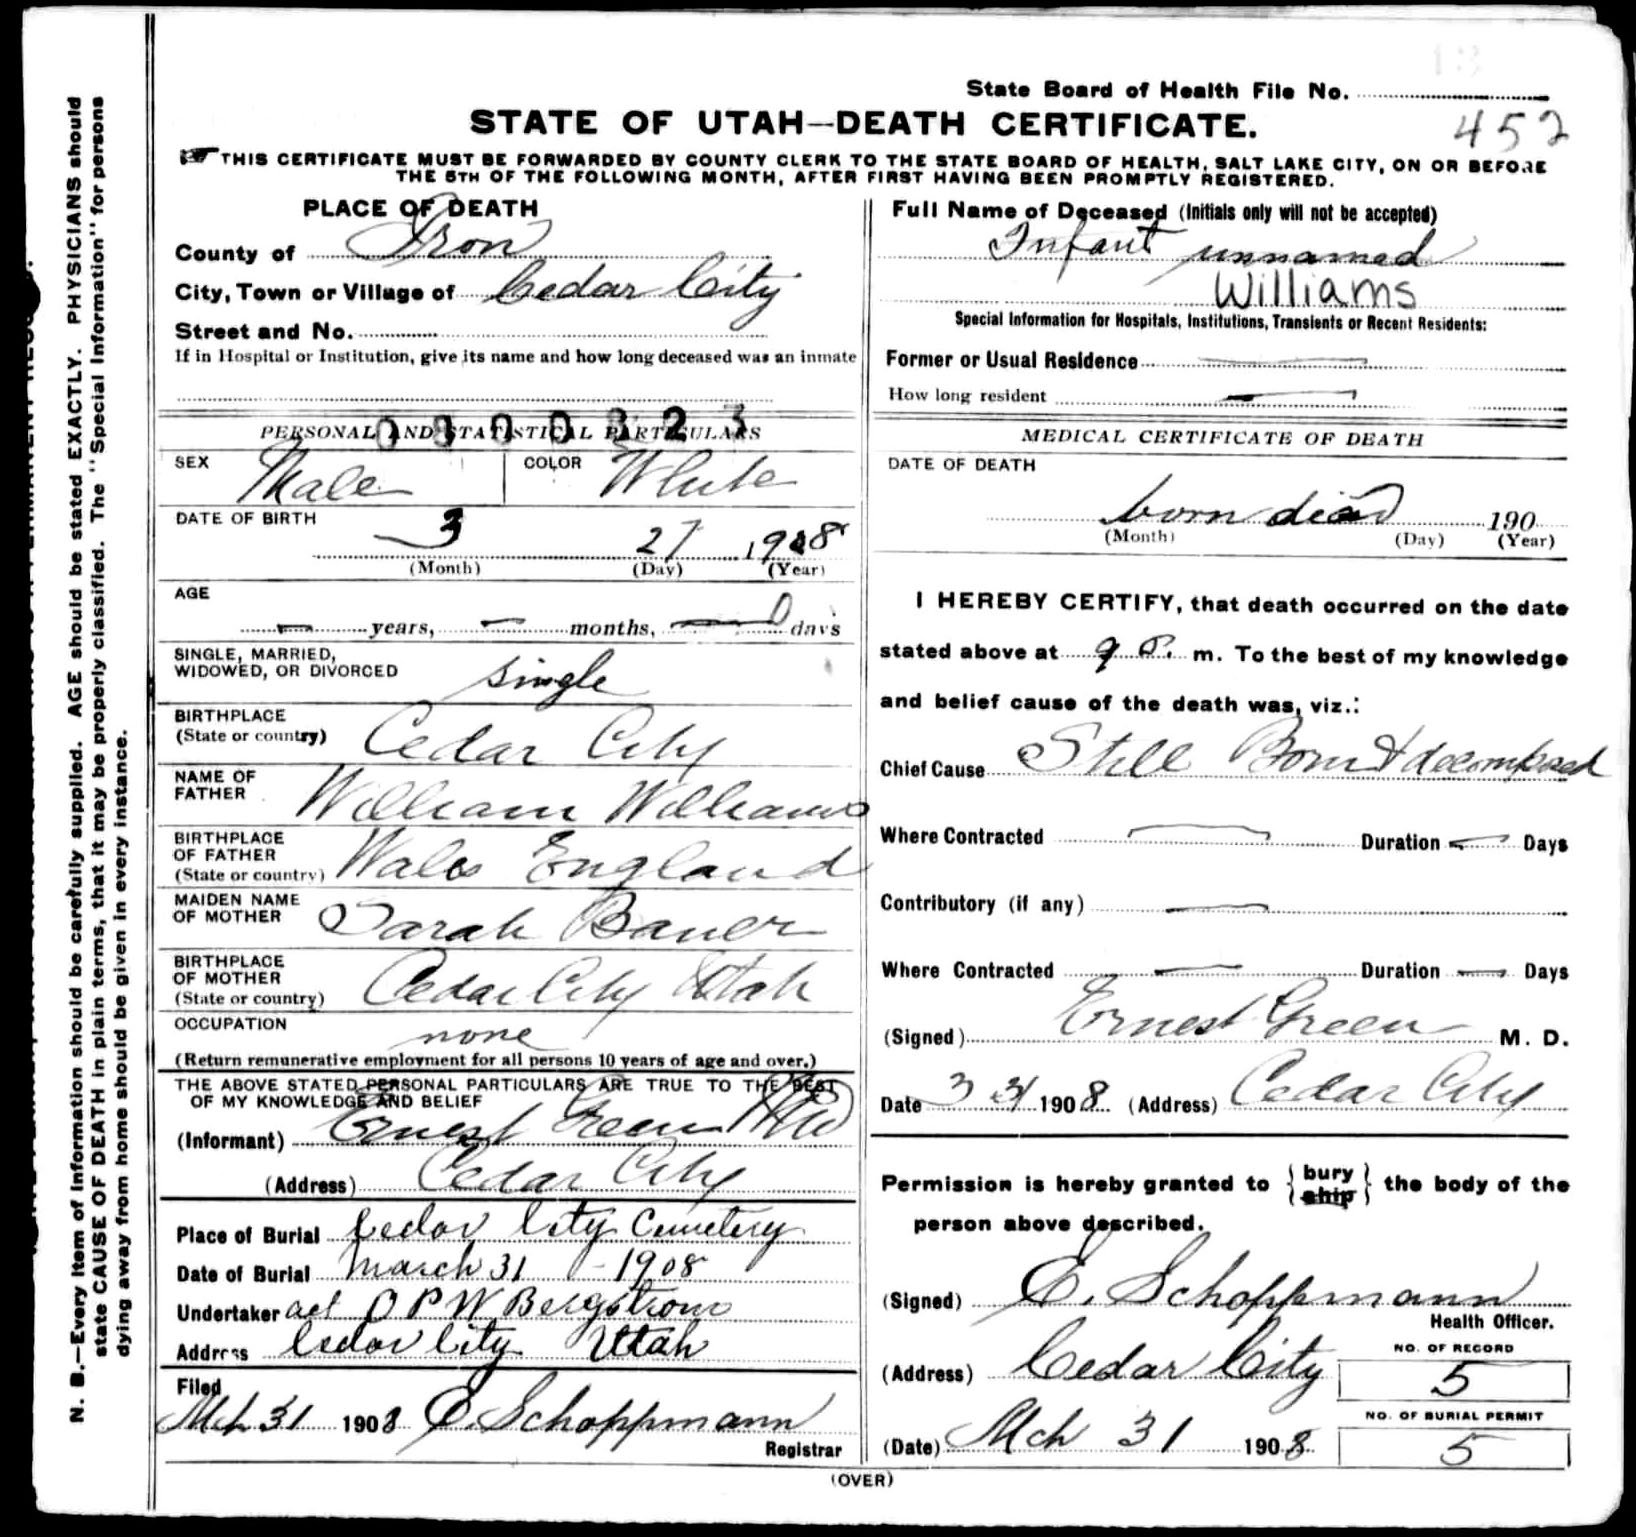 State Board of Health File No.
452
STATE OF UTAH—DEATH CERTIFICATE.
THIS CERTIFICATE MUST BE FORWARDED BY COUNTY CLERK TO THE STATE BOARD OF HEALTH, SALT LAKE CITY, ON OR BEFORE
THE 5TH OF THE FOLLOWING MONTH, AFTER FIRST HAVING BEEN PROMPTLY REGISTERED.
N. B.—Every item of information should be carefully supplied. AGE should be stated EXACTLY. PHYSICIANS should
state CAUSE OF DEATH in plain terms, that it may be properly classified. The "Special Information" for persons
dying away from home should be given in every instance.
PLACE OF DEATH
County of Iron
City, Town or Village of Cedar City
Street and No.
If in Hospital or Institution, give its name and how long deceased was an inmate
PERSONAL AND STATISTICAL PARTICULARS
SEX Male COLOR White
DATE OF BIRTH
3 27 1908
(Month) (Day) (Year)
AGE
years, months, 0 days
SINGLE, MARRIED,
WIDOWED, OR DIVORCED single
BIRTHPLACE
(State or country) Cedar City
NAME OF
FATHER William Williams
BIRTHPLACE
OF FATHER
(State or country) Wales England
MAIDEN NAME
OF MOTHER Sarah Bauer
BIRTHPLACE
OF MOTHER
(State or country) Cedar City Utah
OCCUPATION none
(Return remunerative employment for all persons 10 years of age and over.)
THE ABOVE STATED PERSONAL PARTICULARS ARE TRUE TO THE BEST
OF MY KNOWLEDGE AND BELIEF
(Informant) Ernest Green
(Address) Cedar City
Place of Burial Cedar City Cemetery
Date of Burial March 31 - 1908
Undertaker act O P W Bergstrom
Address Cedar City Utah
Filed
Mch 31 1908 E. Schoppmann
Registrar
Full Name of Deceased (Initials only will not be accepted)
Infant unnamed
Williams
Special Information for Hospitals, Institutions, Transients or Recent Residents:
Former or Usual Residence
How long resident
MEDICAL CERTIFICATE OF DEATH
DATE OF DEATH
born dead 190
(Month) (Day) (Year)
I HEREBY CERTIFY, that death occurred on the date
stated above at 9 P. m. To the best of my knowledge
and belief cause of the death was, viz.:
Chief Cause Still Born & decomposed
Where Contracted Duration Days
Contributory (if any)
Where Contracted Duration Days
(Signed) Ernest Green M. D.
Date 3 31 1908 (Address) Cedar City
Permission is hereby granted to { bury ship } the body of the
person above described.
(Signed) E. Schoppmann
Health Officer.
(Address) Cedar City
NO. OF RECORD
5
NO. OF BURIAL PERMIT
5
(Date) Mch 31 1908
(OVER)